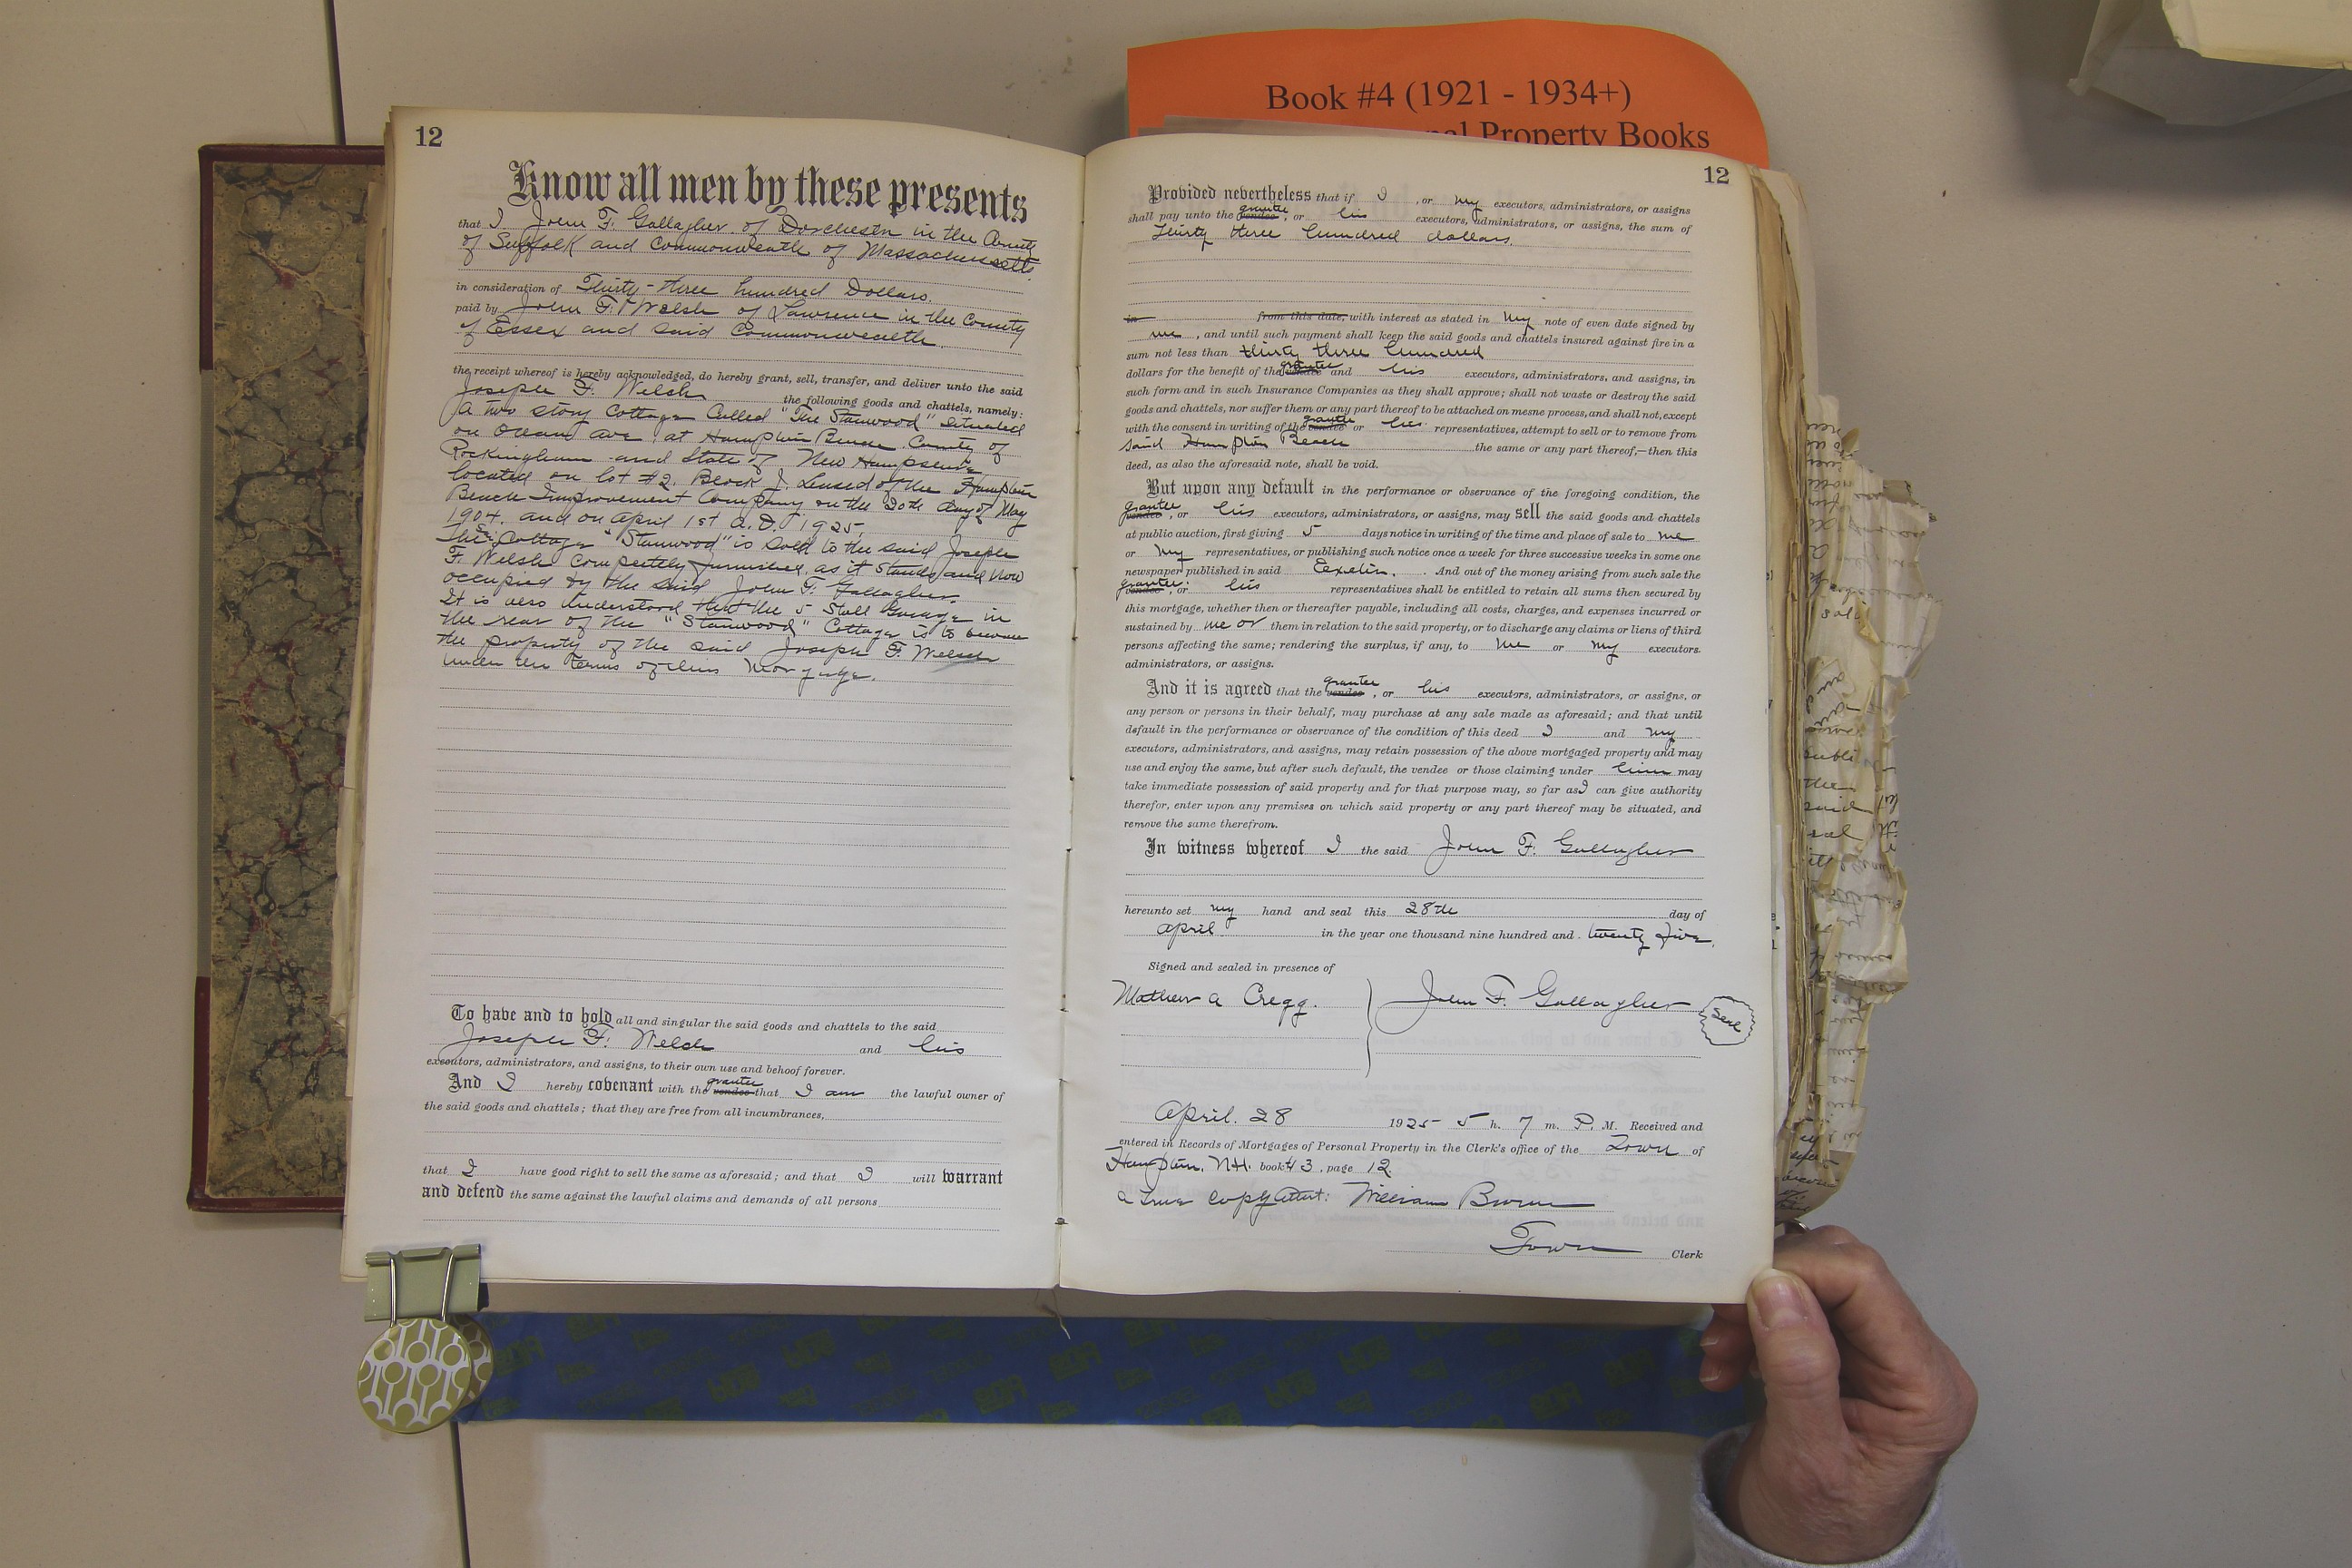 Book #4 (1921 - 1934+)
Property Books
12
Know all men by these presents
that I John F. Gallagher of Dorchester in the County
of Suffolk and Commonwealth of Massachusetts
in consideration of Thirty-three hundred Dollars.
paid by John F. Welsh of Lawrence in the County
of Essex and said Commonwealth.
the receipt whereof is hereby acknowledged, do hereby grant, sell, transfer, and deliver unto the said
Joseph F. Welch the following goods and chattels, namely:
A two story Cottage Called "The Stanwood" situated
on Ocean Ave. at Hampton Beach County of
Rockingham and State of New Hampshire
located on lot #2. Block J. Leased of the Hampton
Beach Improvement Company on the 20th day of May
1904. and on April 1st A.D. 1925.
This Cottage "Stanwood" is sold to the said Joseph
F. Welsh completely furnished, as it stands and now
occupied by the said John F. Gallagher
It is also understood that the 5 Stall Garage in
the rear of the "Stanwood" Cottage is to become
the property of the said Joseph F. Welsh
under the terms of this Morgage.
To have and to hold all and singular the said goods and chattels to the said
Joseph F. Welch and his
executors, administrators, and assigns, to their own use and behoof forever.
And I hereby covenant with the grantee vendee that I am the lawful owner of
the said goods and chattels; that they are free from all incumbrances,
that I have good right to sell the same as aforesaid; and that I will warrant
and defend the same against the lawful claims and demands of all persons
12
Provided nevertheless that if I , or my executors, administrators, or assigns
shall pay unto the grantee vendee, or his executors, administrators, or assigns, the sum of
Thirty three hundred dollars.
in from this date, with interest as stated in my note of even date signed by
me , and until such payment shall keep the said goods and chattels insured against fire in a
sum not less than thirty three hundred
dollars for the benefit of the grantee vendee and his executors, administrators, and assigns, in
such form and in such Insurance Companies as they shall approve; shall not waste or destroy the said
goods and chattels, nor suffer them or any part thereof to be attached on mesne process, and shall not, except
with the consent in writing of the grantee vendee or his representatives, attempt to sell or to remove from
said Hampton Beach the same or any part thereof,—then this
deed, as also the aforesaid note, shall be void.
But upon any default in the performance or observance of the foregoing condition, the
grantee vendee, or his executors, administrators, or assigns, may sell the said goods and chattels
at public auction, first giving 5 days notice in writing of the time and place of sale to me
or my representatives, or publishing such notice once a week for three successive weeks in some one
newspaper published in said Exeter. And out of the money arising from such sale the
grantee vendee, or his representatives shall be entitled to retain all sums then secured by
this mortgage, whether then or thereafter payable, including all costs, charges, and expenses incurred or
sustained by me or them in relation to the said property, or to discharge any claims or liens of third
persons affecting the same; rendering the surplus, if any, to me or my executors.
administrators, or assigns.
And it is agreed that the grantee vendee, or his executors, administrators, or assigns, or
any person or persons in their behalf, may purchase at any sale made as aforesaid; and that until
default in the performance or observance of the condition of this deed I and my
executors, administrators, and assigns, may retain possession of the above mortgaged property and may
use and enjoy the same, but after such default, the vendee or those claiming under him may
take immediate possession of said property and for that purpose may, so far as I can give authority
therefor, enter upon any premises on which said property or any part thereof may be situated, and
remove the same therefrom.
In witness whereof I the said John F. Gallagher
hereunto set my hand and seal this 28th day of
April in the year one thousand nine hundred and twenty five.
Signed and sealed in presence of
Mathew A Cregg. John F. Gallagher Seal
April. 28 1925 5 h. 7 m. P. M. Received and
entered in Records of Mortgages of Personal Property in the Clerk's office of the Town of
Hampton, N.H. book #3, page 12.
A true copy Attest: William Brown
Town Clerk